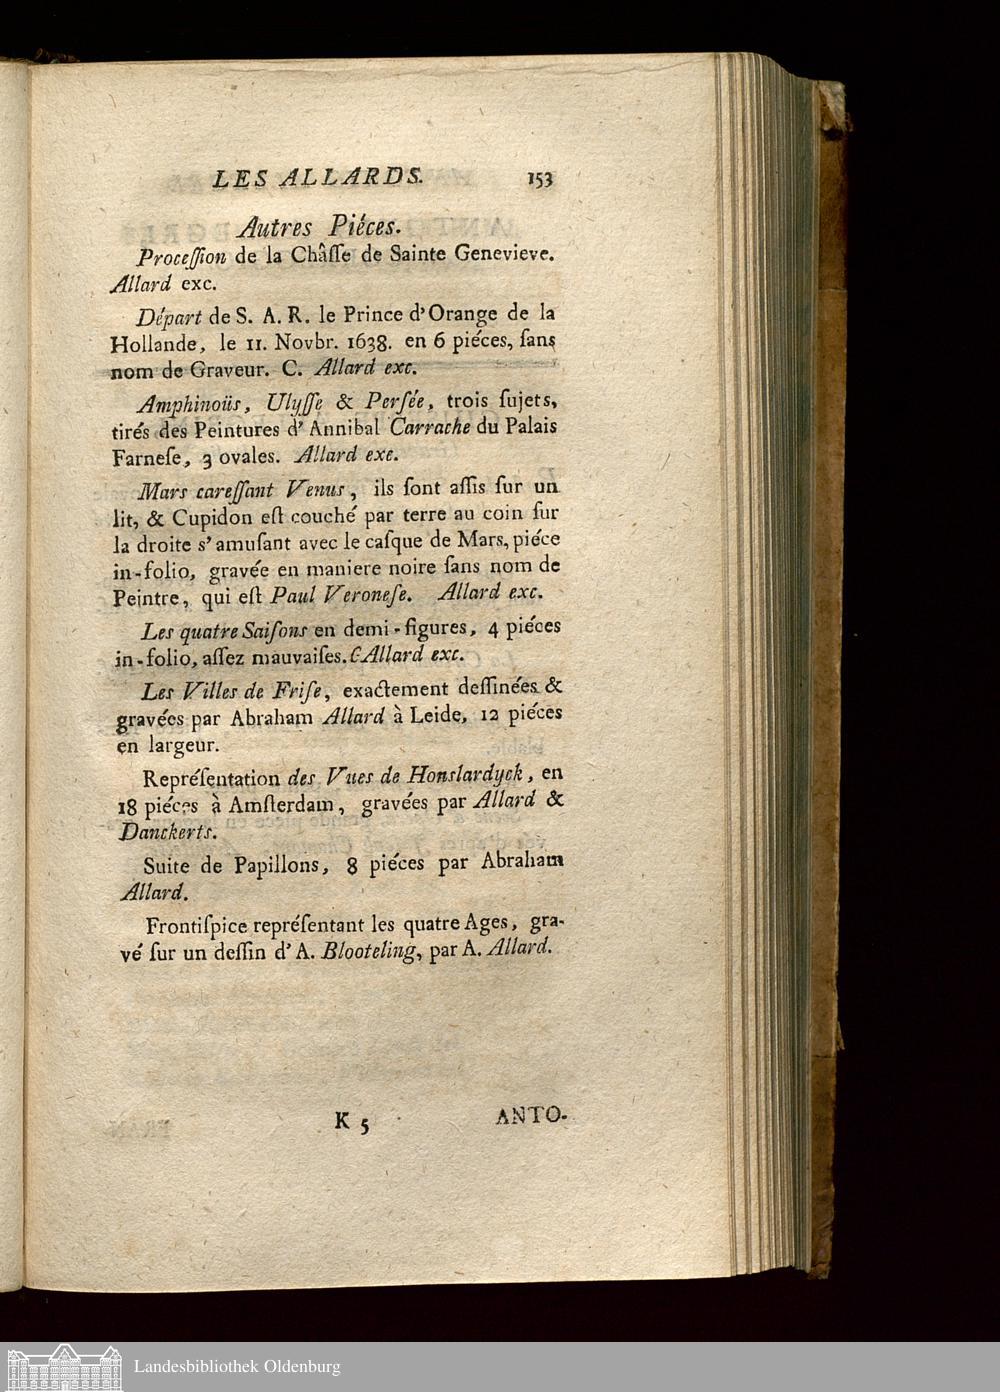 LES ALLARDS. 153
Autres Piéces.
Proceſſion de la Châſſe de Sainte Genevieve.
Allard exc.
Départ de S. A. R. le Prince d'Orange de la
Hollande, le 11. Novbr. 1638. en 6 piéces, ſans
nom de Graveur. C. Allard exc.
Amphinoüs, Ulyſſe & Perſée, trois ſujets,
tirés des Peintures d'Annibal Carrache du Palais
Farneſe, 3 ovales. Allard exc.
Mars careſſant Venus, ils ſont aſſis ſur un
lit, & Cupidon eſt couché par terre au coin ſur
la droite s'amuſant avec le caſque de Mars, piéce
in-folio, gravée en maniere noire ſans nom de
Peintre, qui eſt Paul Veroneſe. Allard exc.
Les quatre Saiſons en demi-figures, 4 piéces
in-folio, aſſez mauvaiſes. C Allard exc.
Les Villes de Friſe, exactement deſſinées &
gravées par Abraham Allard à Leide, 12 piéces
en largeur.
Repréſentation des Vues de Honslardyck, en
18 piéces à Amſterdam, gravées par Allard &
Danckerts.
Suite de Papillons, 8 piéces par Abraham
Allard.
Frontiſpice repréſentant les quatre Ages, gra-
vé ſur un deſſin d'A. Blooteling, par A. Allard.
K 5 ANTO-
Landesbibliothek Oldenburg